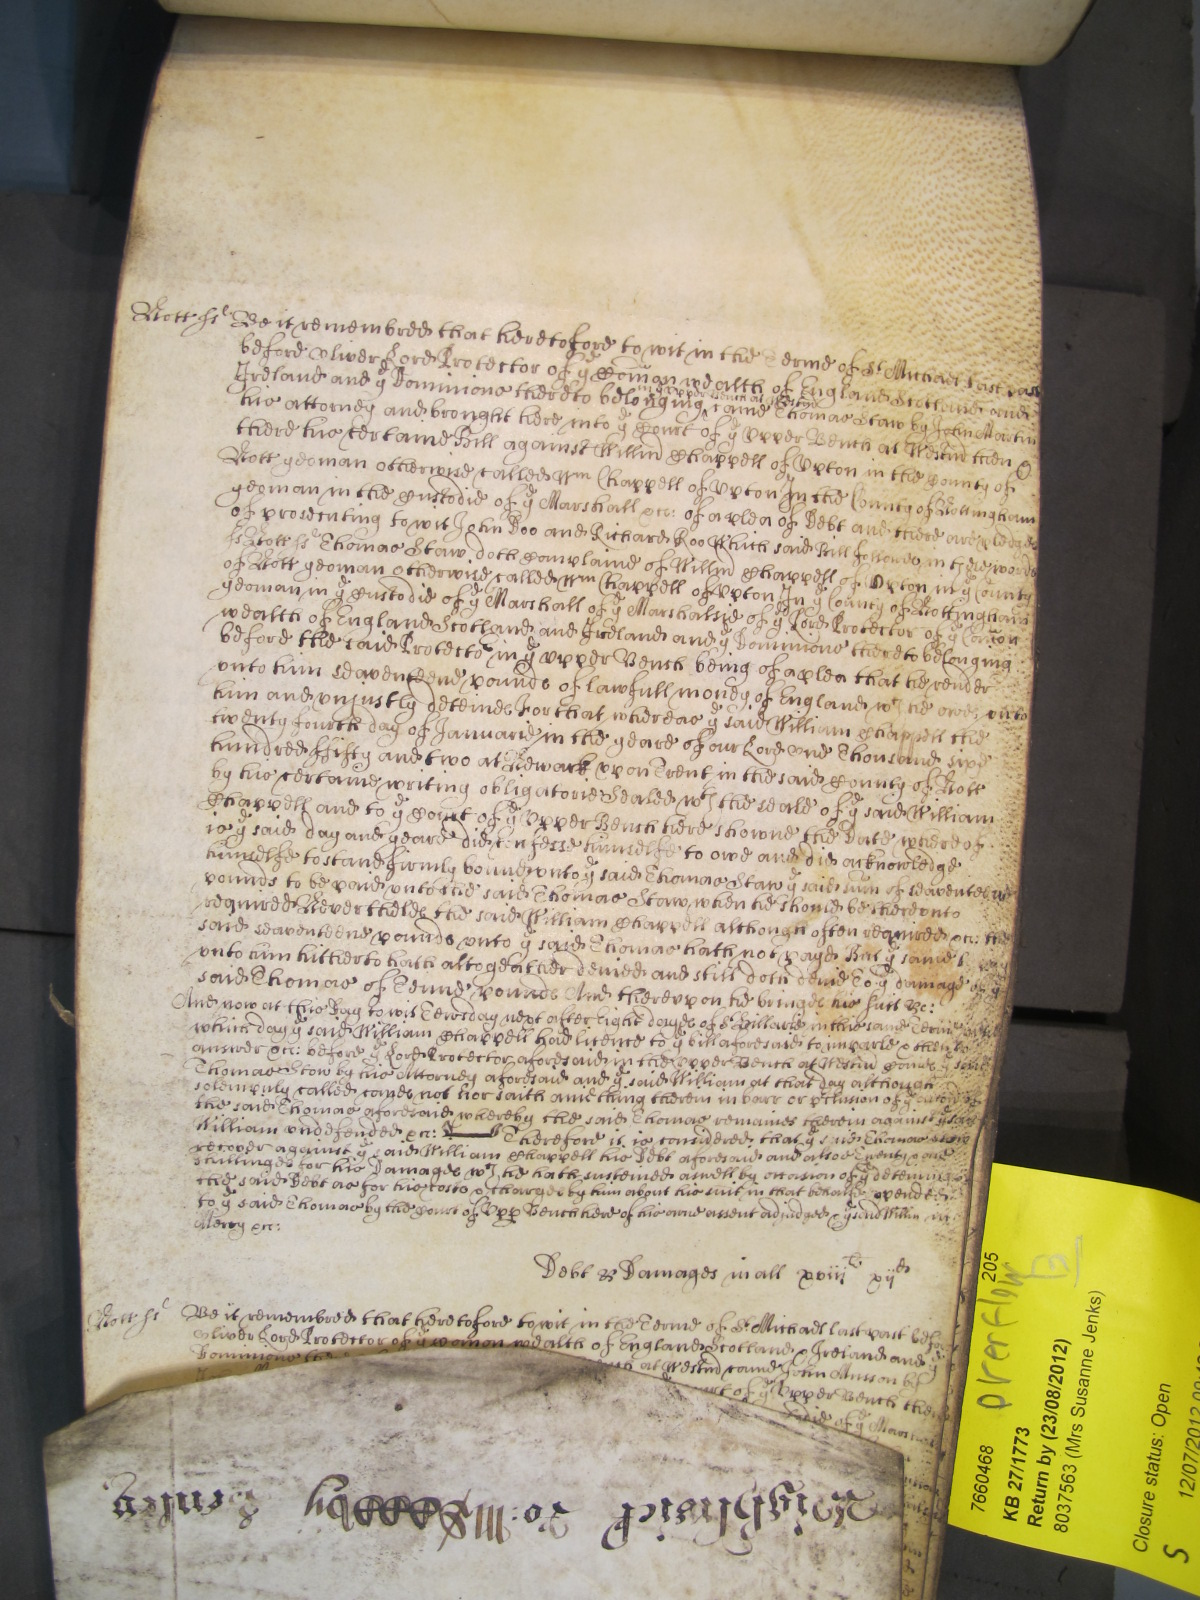 Nott ss Be it remembred that heretofore to wit in the Terme of St Michaell last past
before Oliver Lord Protector of ye Common wealth of England Scotland and
Ireland and ye Dominions thereto belonging in ye upper Bench at Westmr came Thomas Staw by John Martin
his attorney and brought here into ye Court of ye Upper Bench at Westmr then &
there his certaine Bill against Willm Chappell of Upton in the County of
Nott yeoman otherwise called Wm Chappell of Upton In the County of Nottingham
yeoman in the Custodie of ye Marshall &c: of a plea of Debt and there are pledges
of prosecuting to wit John Doo and Richard Roo Which said Bill followes in these words
ss Nott ss Thomas Staw doth Complaine of Willm Chappell of Upton in ye County
of Nott yeoman otherwise called Wm Chappell of Upton In ye County of Nottingham
yeoman in ye Custodie of ye Marshall of ye Marshalsie of ye Lord Protector of ye Comon
wealth of England Scotland and Ireland and ye Dominions thereto belonging
before the said Protector in ye upper Bench being of a plea that he render
unto him seaventeene pounds of lawfull money of England wch he owes unto
him and unjustly deteines For that whereas ye said William Chappell the
twenty fourth day of Januarie in the yeare of our Lord One Thousand sixe
hundred Fifty and two at Newark upon Trent in the said County of Nott
by his certaine writing obligatorie Sealed wth the seale of ye said William
Chappell and to ye Court of ye Upper Bench here showne the Date whereof
is ye said day and yeare did confesse himselfe to owe and did acknowledge
himselfe to stand firmly bound unto ye said Thomas Staw ye said sum of seaventeene
pounds to be paid unto the said Thomas Staw when he should be thereunto
required Neverthelesse the said William Chappell although often required &c: the
said seaventeene pounds unto ye said Thomas hath not payd But ye same
unto him hitherto hath altogeather denied and still doth denie To ye damage of ye
said Thomas of Tenne pounds And thereupon he bringes his suit &c:
And now at this Day to wit Tewsday next after Eight dayes of St Hillarie in this same Terme untill
which day ye said William Chappell had licence to ye bill aforesaid to imparle & then to
answer &c: before ye Lord Protector aforesaid in the Upper Bench at Westmr comes ye said
Thomas Staw by his Attorney aforesaid and ye said William at that day although
solemnly called comes not Nor saith anything therein in barr or pclusion of ye action of
the said Thomas aforesaid whereby the said Thomas remaines therein against ye said
William undefended &c: Therefore it is considered that ye said Thomas
recover against ye said William Chappell his Debt aforesaid and alsoe Twenty and
shillinges for his Damages wch he hath susteined aswell by occasion of ye deteining
the said Debt as for his costs & charges by him about his suit in that behalfe expended
to ye said Thomas by the Court of Upp Bench here of his owne assent adjudged & ye said Willm in
Mercy &c:
Debt & Damages in all xviii li xii d
Nott ss Be it remembred that heretofore to wit in the Terme of St Michaell last past before
Oliver Lord Protector of ye Comon wealth of England Scotland & Ireland and ye
Dominions at Westmr came John Musson by
Court of ye Upper Bench then
Custodie of ye Marshall
7660468 overflow 205
KB 27/1773
Return by (23/08/2012)
8037563 (Mrs Susanne Jenks)
Closure status: Open
12/07/2012
S